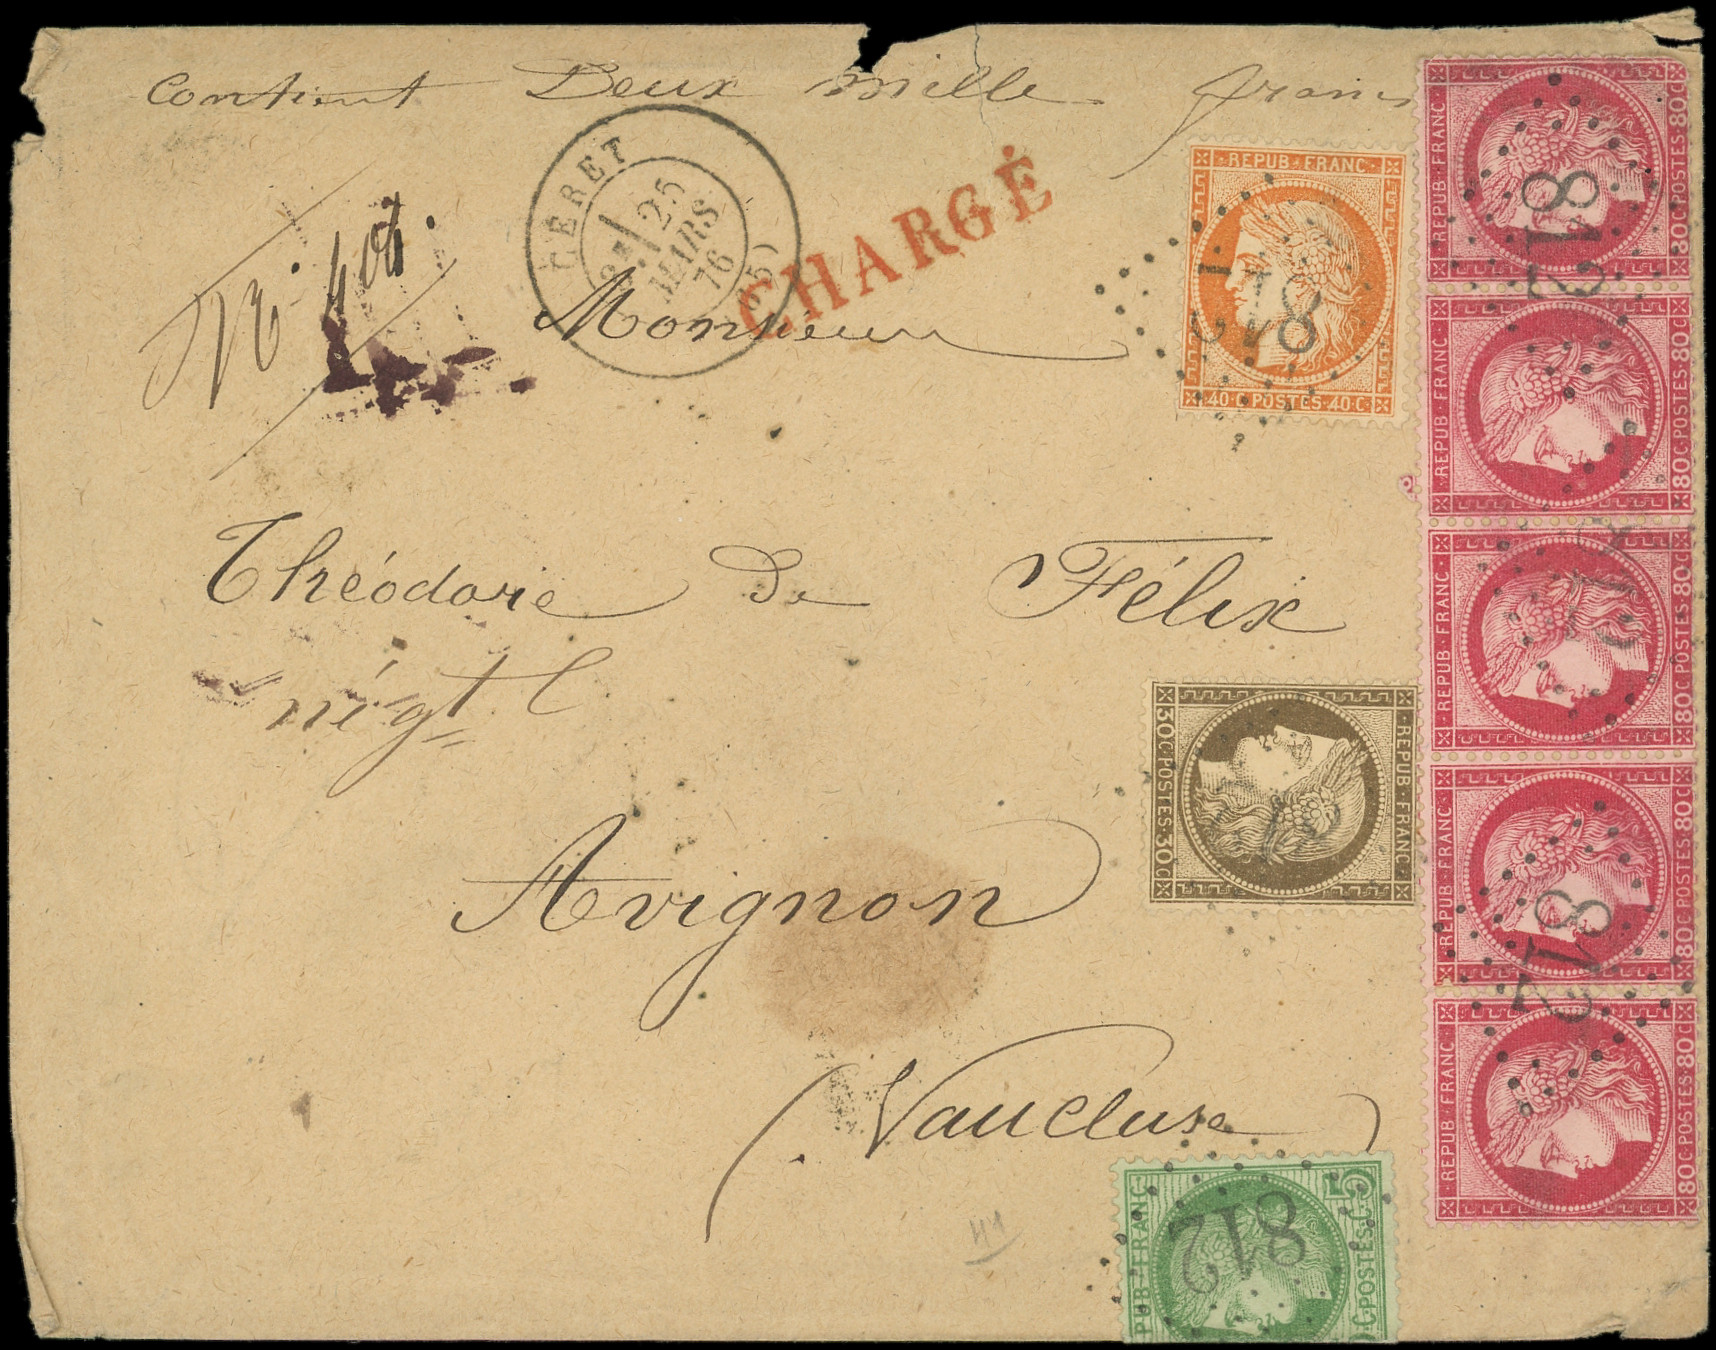 Contient Deux mille francs
CÉRET
25
MARS
76
CHARGÉ
N° 408.
Monsieur
Théodore De Félix
négt
Avignon
(Vaucluse)
REPUB FRANC
40 C POSTES 40 C
812
REPUB FRANC
80 C POSTES 80 C
812
REPUB FRANC
80 C POSTES 80 C
REPUB FRANC
80 C POSTES 80 C
812
REPUB FRANC
80 C POSTES 80 C
812
REPUB FRANC
80 C POSTES 80 C
REPUB FRANC
30 C POSTES 30 C
PUB FRANC
5 C POSTES 5
812